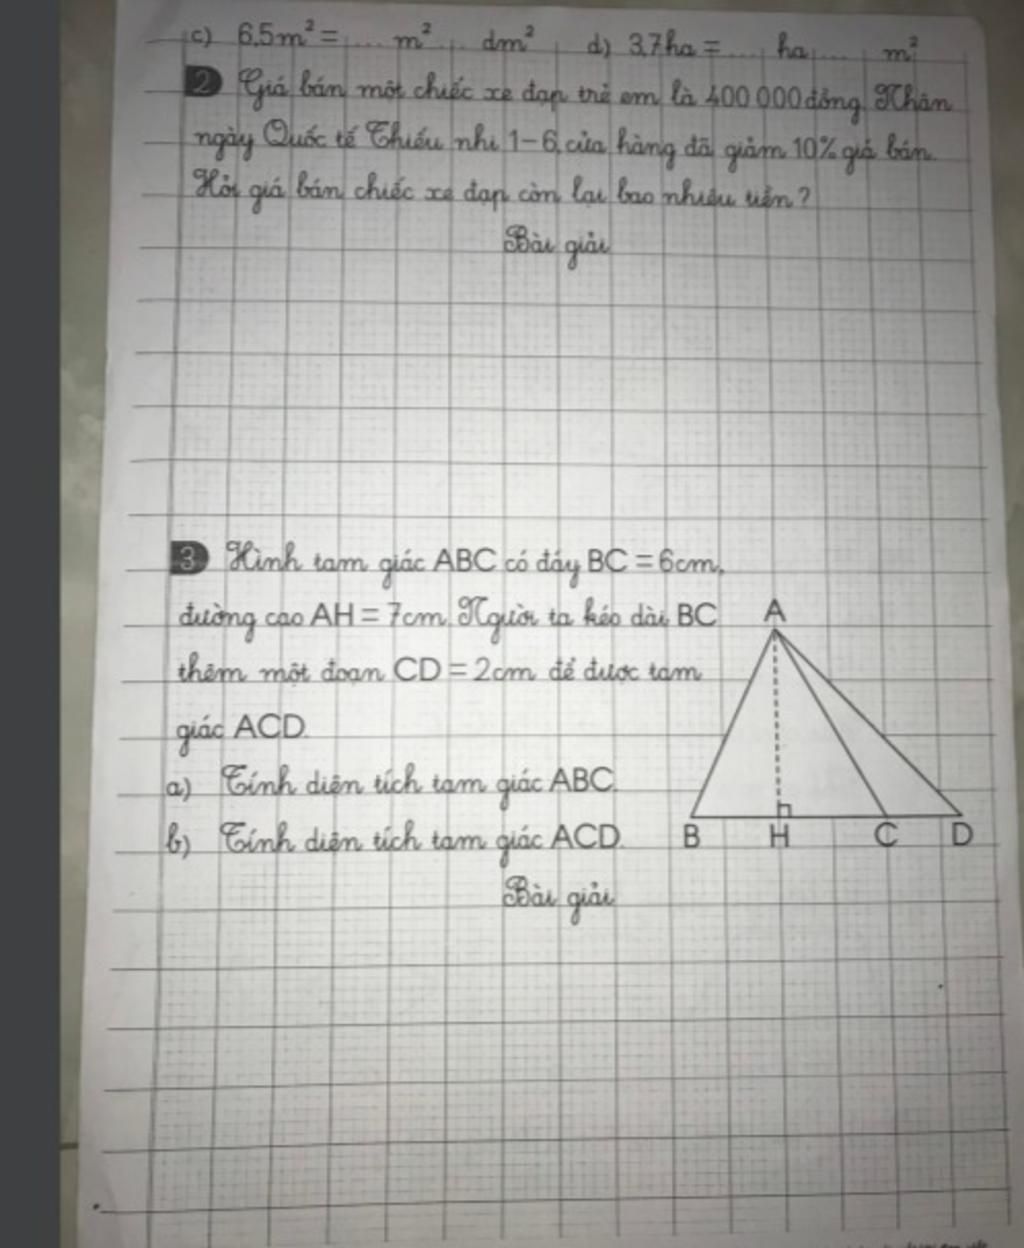 c) 6,5m² = .... m² .... dm² d) 3,7ha = .... ha .... m²
2 Giá bán một chiếc xe đạp trẻ em là 400 000 đồng. Nhân
ngày Quốc tế Thiếu nhi 1-6, cửa hàng đã giảm 10% giá bán.
Hỏi giá bán chiếc xe đạp còn lại bao nhiêu tiền?
Bài giải
3 Hình tam giác ABC có đáy BC = 6cm,
đường cao AH = 7cm. Người ta kéo dài BC
thêm một đoạn CD = 2cm để được tam
giác ACD.
a) Tính diện tích tam giác ABC.
b) Tính diện tích tam giác ACD.
A
B H C D
Bài giải